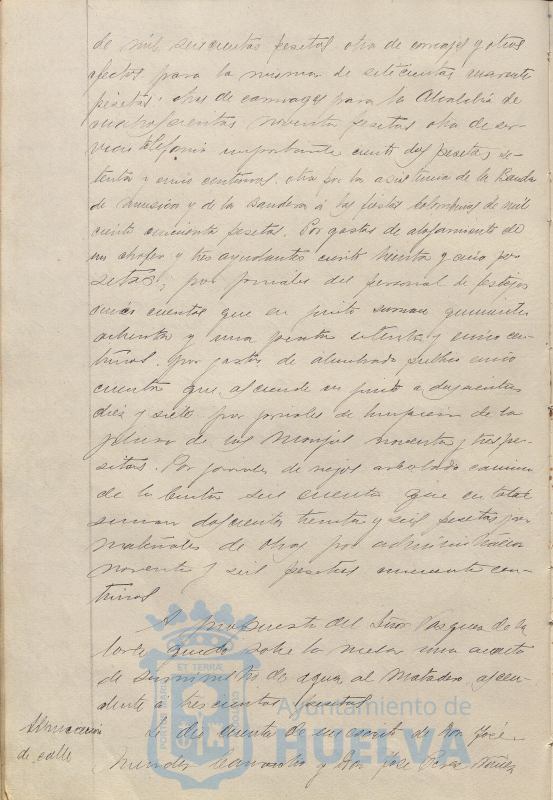 de mil seiscientas pesetas otra de carruajes y otros
efectos para la misma de setecientas cuarenta
pesetas: otras de carruages para la Alcaldia de
cuatrocientas noventa pesetas otra de ser-
vicio telefonico importante ciento dos pesetas se-
tenta y cinco centimos. otra por la asistencia de la Banda
de musica y de la bandera á las fiestas Colombinas de mil
ciento cincuenta pesetas. Por gastos de alojamiento de
un chofer y tres ayudantes ciento treinta y cinco pe-
setas; por jornales del personal de festejos
cuentas que en junto suman quinientas
ochenta y una peseta setenta y cinco cen-
timos. por gastos de alumbrado publico cinco
cuentas que ascienden en junto a doscientas
diez y siete por jornales de limpieza de la
plaza de las Monjas noventa y tres pe-
setas. Por jornales de riegos arbolado camino
de la Cinta seis cuentas que en total
suman doscientas treinta y seis pesetas por
materiales de obras por administracion
noventa y seis pesetas cincuenta cen-
timos
A propuesta del Señor Vazquez de la
Corte quedó sobre la mesa una cuenta
de suministro de agua al Matadero ascen-
dente a trescientas pesetas
Se dio cuenta de un escrito de Don José
Alineacion
de calle
Mendez Camacho y Don José Perez Nuñez
ET TERRÆ
PORTUS MARIS
CUSTODIA
Ayuntamiento de
HUELVA